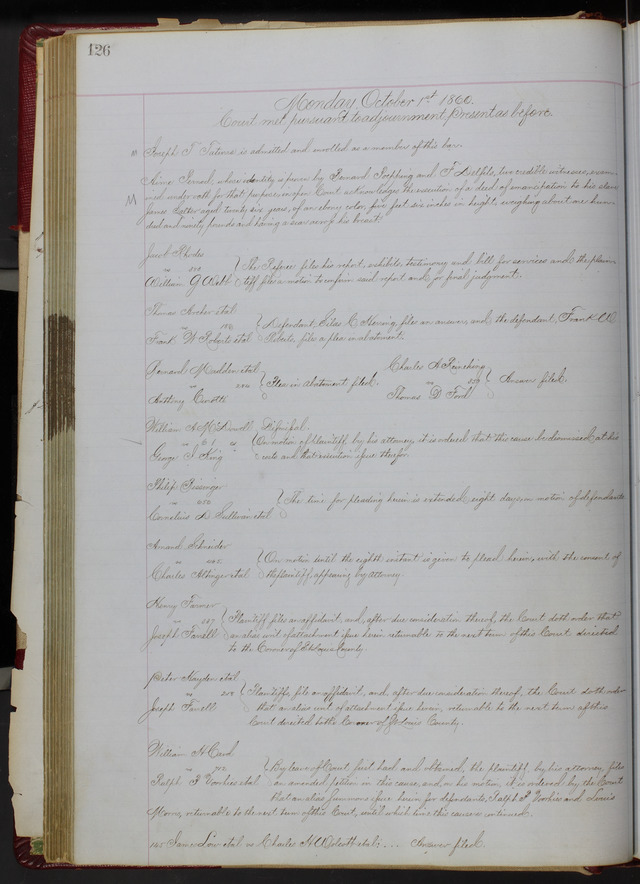 126
Monday, October 1st 1860.
Court met pursuant to adjournment, present as before.
M Joseph T. Tatum is admitted and enrolled as a member of this bar.
whose identity is proven by Bernard and F. two credible witnesses, exam-
M ined under oath for that purpose, in open Court acknowledges the execution of a deed of emancipation to his slave
James aged twenty six years, of an ebony color, five feet six inches in height, weighing about one hun-
dred and ninety pounds and having a scar across his breast.
Jacob Rhodes
vs The Referee files his report, exhibits, testimony and bill for services and the plain-
William G Webb tiff files a motion to confirm said report and for final judgment.
Thomas Archer et al
vs Defendant, Giles C. files an answer, and the defendant, Frank W
Frank W Roberts et al Roberts, files a plea in abatement.
Bernard Madden et al
vs Plea in Abatement filed.
Anthony
Charles A
vs Answer filed.
Thomas D Ford
William A McDowell Dismissal.
vs On motion of plaintiff by his attorney, it is ordered that this cause be dismissed at his
George I King costs and that execution issue therefor.
Philip
vs The time for pleading herein is extended eight days, on motion of defendants
Cornelius D Sullivan et al
Amand Schneider
vs On motion until the eighth instant is given to plead herein, with the consent of
Charles et al the plaintiff, appearing by attorney.
Henry Farmer
vs Plaintiff files an affidavit, and, after due consideration thereof, the Court doth order that
Joseph Farrell an alias writ of attachment issue herein returnable to the next term of this Court directed
to the Coroner of St Louis County.
Peter Hayden et al
vs Plaintiffs file an affidavit, and, after due consideration thereof, the Court doth order
Joseph Farrell that an alias writ of attachment issue herein, returnable to the next term of this
Court directed to the Coroner of St Louis County.
William H Card
vs By leave of Court first had and obtained, the plaintiff, by his attorney, files
Ralph P Voorhies et al an amended petition in this cause, and, on his motion, it is ordered by the Court
that an alias Summons issue herein for defendants, Ralph P Voorhies and Louis
returnable to the next term of this Court, until which time this cause is continued.
145 James Low et al vs Charles H Wolcott et al: ... Answer filed.